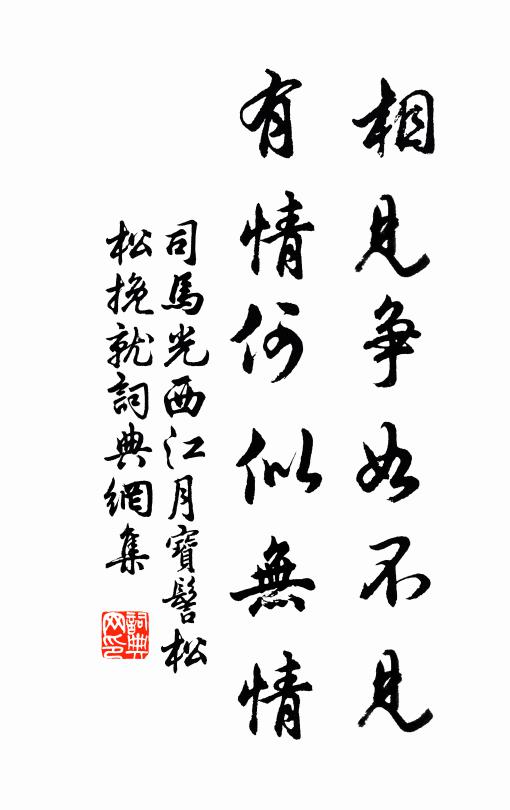 相見争如不見
有情何似無情
司馬光西江月寶髻松
松挽就詞典網集
詞典
网印